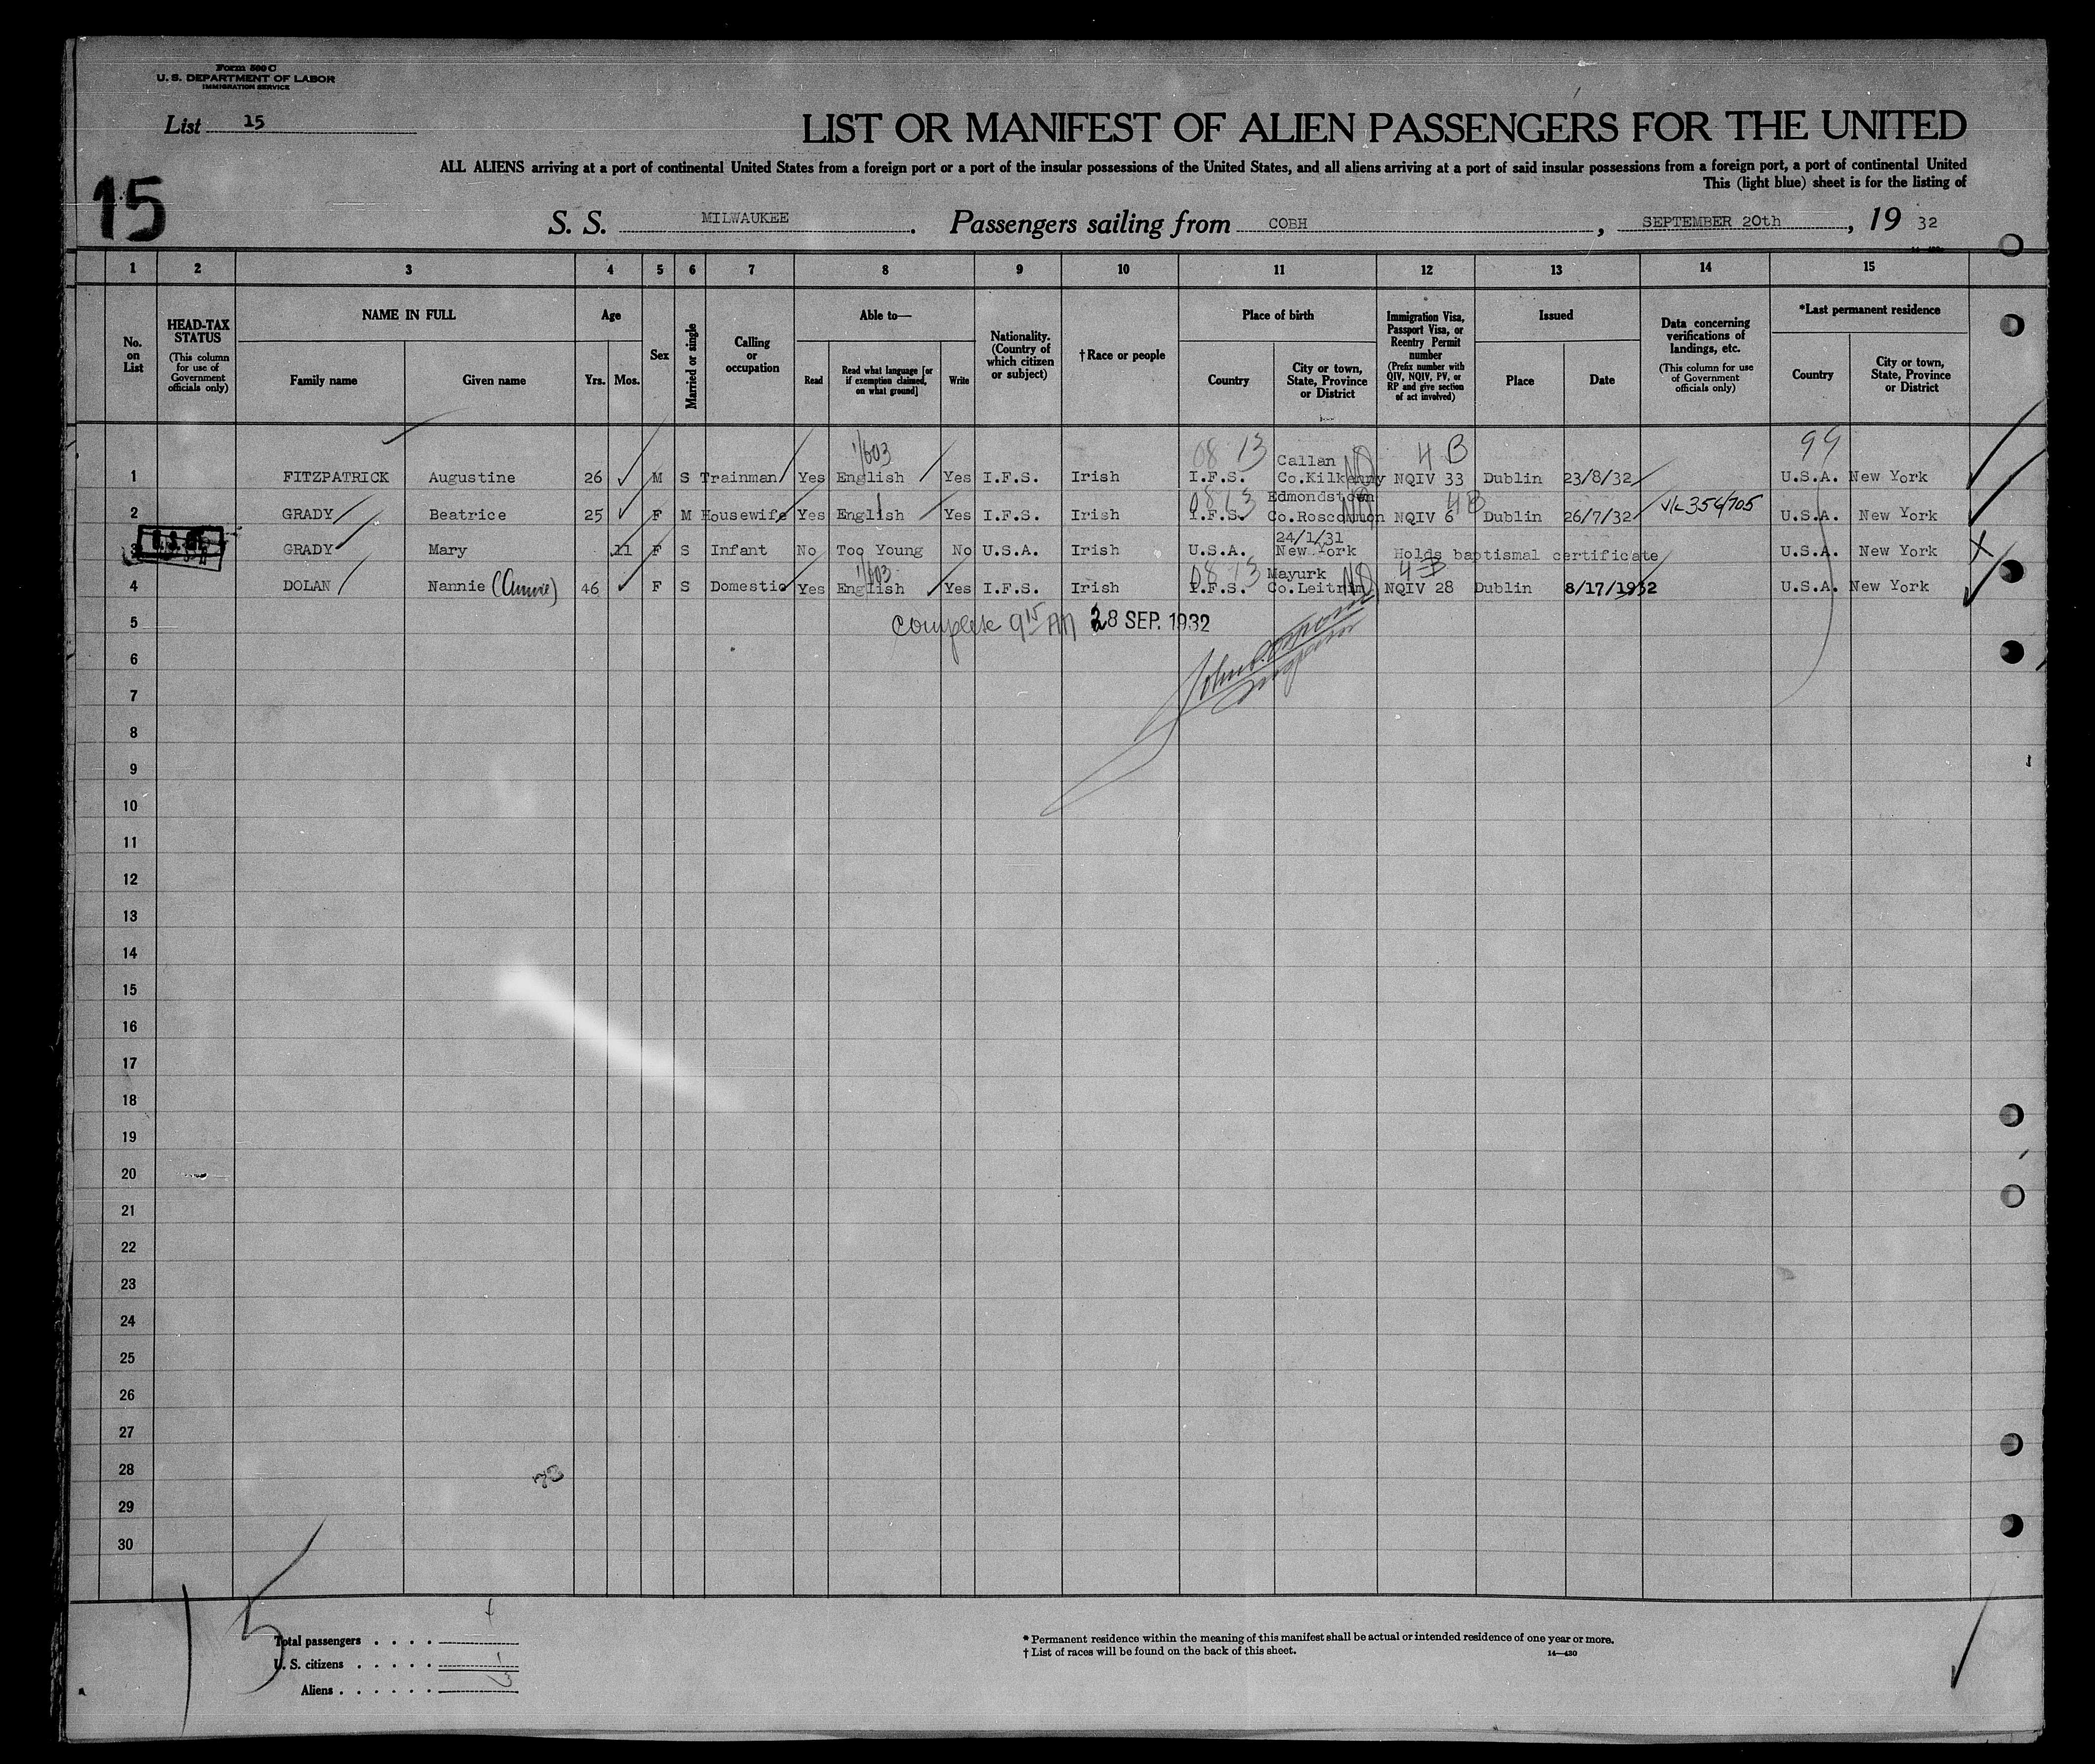 Form 500 C
U. S. DEPARTMENT OF LABOR
IMMIGRATION SERVICE
List 15
LIST OR MANIFEST OF ALIEN PASSENGERS FOR THE UNITED
ALL ALIENS arriving at a port of continental United States from a foreign port or a port of the insular possessions of the United States, and all aliens arriving at a port of said insular possessions from a foreign port, a port of continental United
This (light blue) sheet is for the listing of
15
S. S. MILWAUKEE. Passengers sailing from COBH, SEPTEMBER 20th, 19 32
1 2 3 4 5 6 7 8 9 10 11 12 13 14 15
No. on List
HEAD-TAX STATUS
(This column for use of Government officials only)
NAME IN FULL
Family name
Given name
Age
Yrs. Mos.
Sex
Married or single
Calling or occupation
Able to—
Read
Read what language [or if exemption claimed, on what ground]
Write
Nationality. (Country of which citizen or subject)
†Race or people
Place of birth
Country
City or town, State, Province or District
Immigration Visa, Passport Visa, or Reentry Permit number
(Prefix number with QIV, NQIV, PV, or RP and give section of act involved)
Issued
Place
Date
Data concerning verifications of landings, etc.
(This column for use of Government officials only)
*Last permanent residence
Country
City or town, State, Province or District
1/603 08 13 4 B 99
Callan
1 FITZPATRICK Augustine 26 M S Trainman Yes English Yes I.F.S. Irish I.F.S. Co.Kilkenny NQIV 33 Dublin 23/8/32 U.S.A. New York
Edmondstown 4B
2 GRADY Beatrice 25 F M Housewife Yes English Yes I.F.S. Irish I.F.S. Co.Roscommon NQIV 6 Dublin 26/7/32 V/L 356/705 U.S.A. New York
24/1/31
3 GRADY Mary 11 F S Infant No Too Young No U.S.A. Irish U.S.A. New York Holds baptismal certificate U.S.A. New York
1/603 08 13 Mayurk 4 B
4 DOLAN Nannie (Annie) 46 F S Domestic Yes English Yes I.F.S. Irish I.F.S. Co.Leitrim NQIV 28 Dublin 8/17/1932 U.S.A. New York
5 complete 9 15 AM 28 SEP. 1932
6
7
8
9
10
11
12
13
14
15
16
17
18
19
20
21
22
23
24
25
26
27
28
29
30
15
Total passengers
U. S. citizens
Aliens
* Permanent residence within the meaning of this manifest shall be actual or intended residence of one year or more.
† List of races will be found on the back of this sheet.
14—430